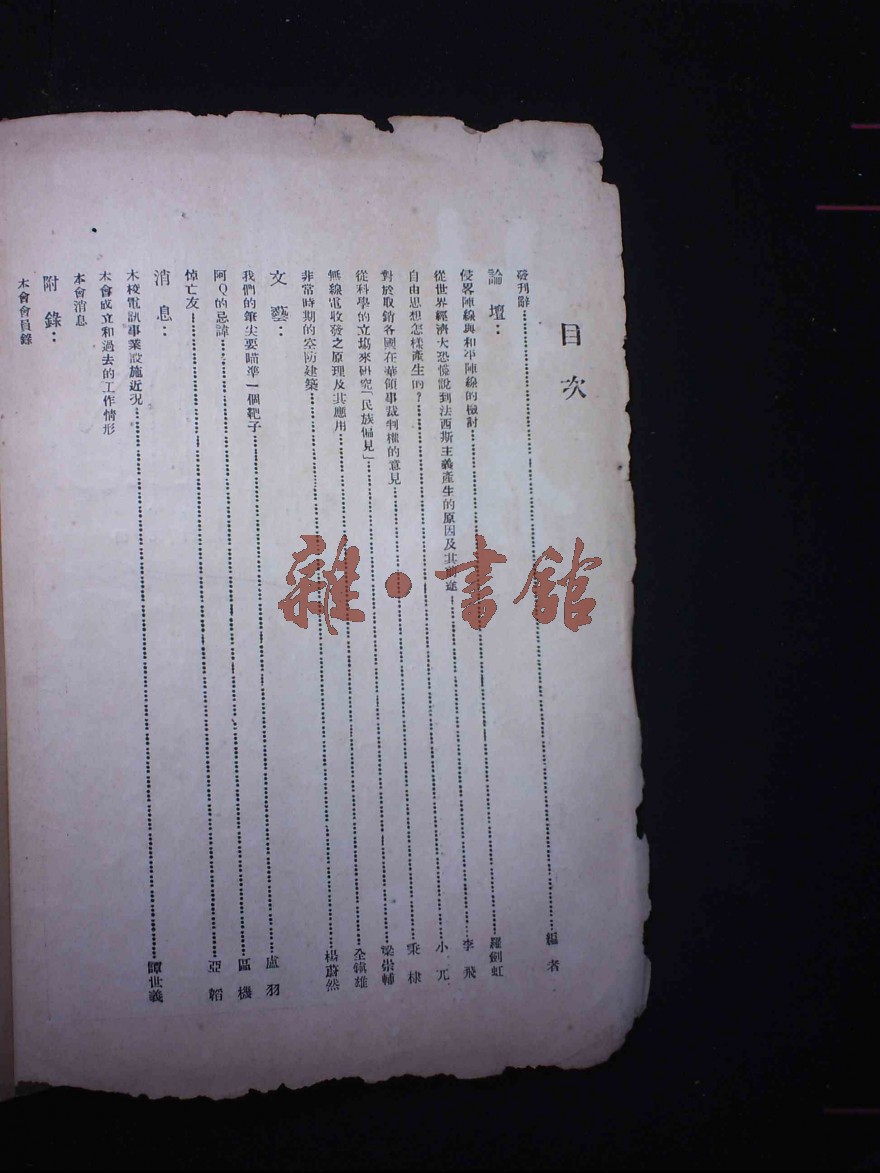 目次
發刊辭 編者
論壇：
侵畧陣線與和平陣線的檢討 羅劍虹
從世界經濟大恐慌說到法西斯主義產生的原因及其前途 李飛
自由思想怎樣產生的？ 小兀
對於取銷各國在華領事裁判權的意見 秉棣
從科學的立塲來研究「民族偏見」 梁崇輔
無線電收發之原理及其應用 全鎮雄
非常時期的空防建築 楊蔚然
文藝：
我們的筆尖要瞄準一個靶子 盧羽
阿Q的忌諱 區機
悼亡友 亞韜
消息：
本校電訊事業設施近況 譚世義
本會成立和過去的工作情形
本會消息
附錄：
本會會員錄
雜·書館